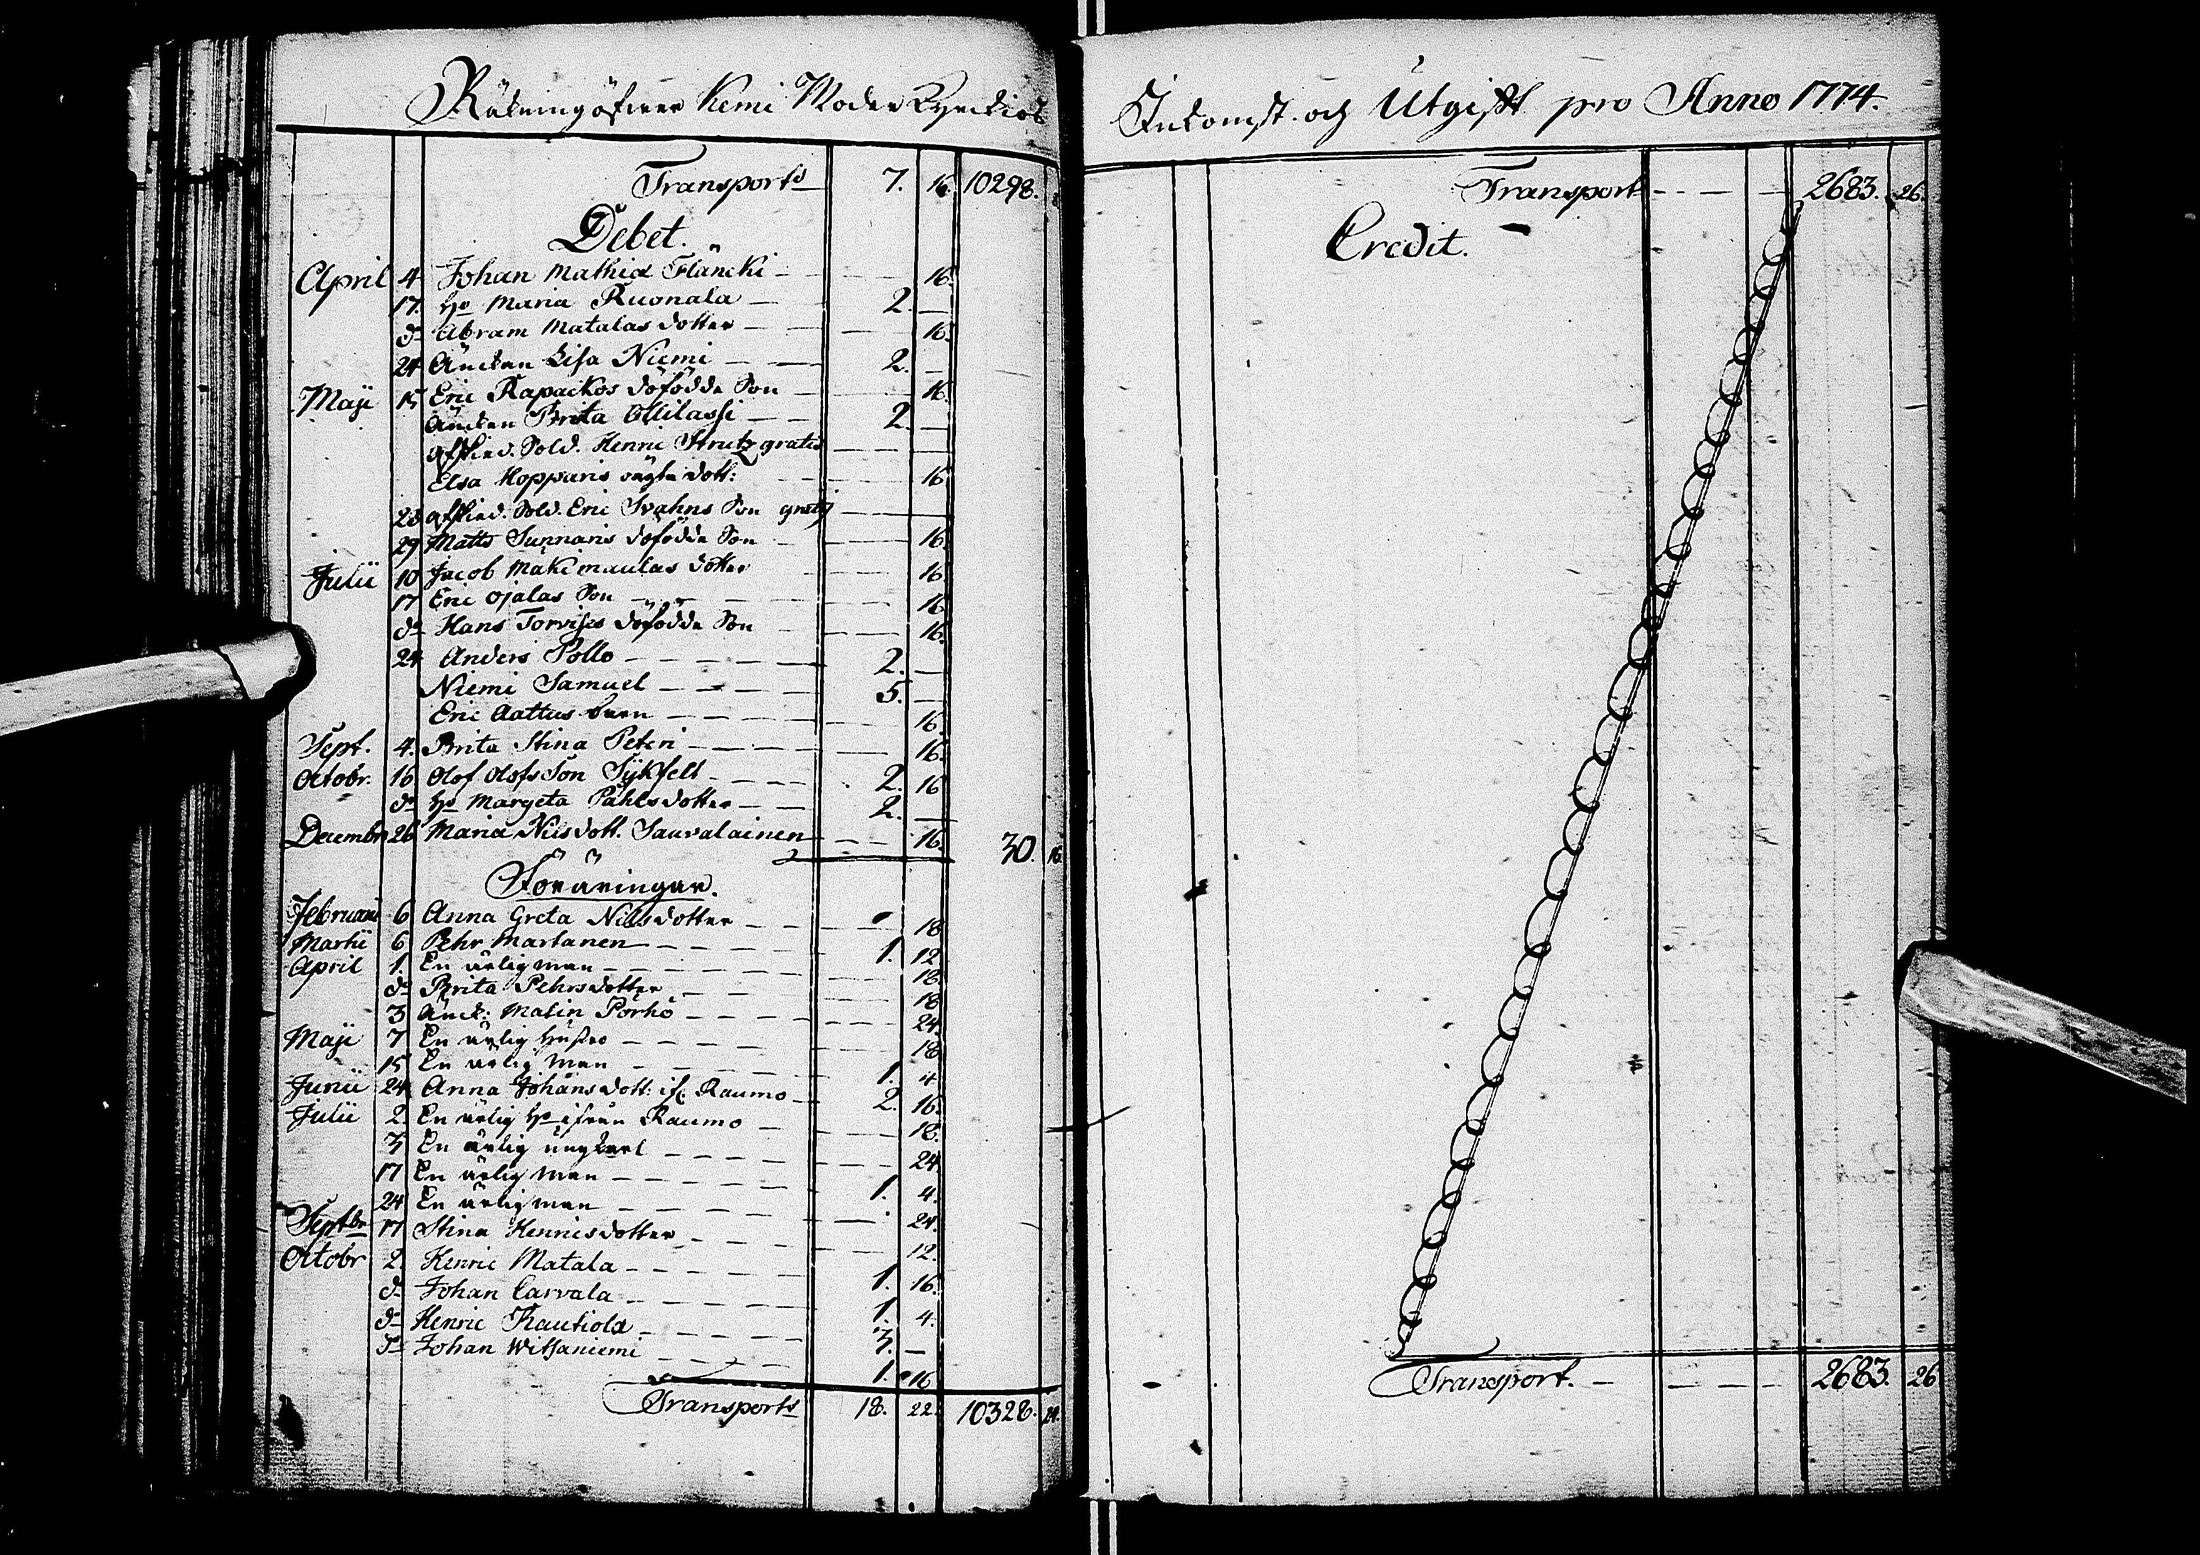 Räkning öfver Kemi Moder Kyrckios
Transport 7. 16. 10298.
Debet.
April 4 Johan Mathias Fläncki 16.
17. Ho Maria Ruonala 2. —
do Abram Matalas dotter 16.
24 Änckan Lisa Niemi 2. —
Maji 15 Eric Rapackos döfödde Son 16.
Änckan Brita Ollilassi 2. —
afsked. Sold. Henric Strutz gratis
Elsa Hopparis oägta dott: 16
23 afsked. Sold. Eric Svahns Son gratis
29 Matts Sunnaris döfödde Son 16.
Julii 10 Jacob Makimaulas dotter 16
17 Eric Ojalas Son 16.
do Hans Torvises döfödde Son 16.
24 Anders Pollo 2. —
Niemi Samuel 5. —
Eric Aattus barn 16
Sept. 4. Brita Stina Peteri 16.
Octobr. 16 Olof Olofs Son Sykfelt 2. 16
do Ho Margeta Påhlsdotter 2. —
Decembr 26 Maria Nilsdott. Sauvalainen 16. 30. 16
Föräringar.
Februarii 6 Anna Greta Nilsdotter 18
Martii 6 Pehr Martanen 1. 12
April 1. En ärlig man 18.
do Brita Pehrsdotter 18
3 Änck: Malin Porho 24.
Maji 7 En ärlig hustro 18
15 En ärlig man 1. 4
Junii 24 Anna Johansdott: if. Raumo 2. 16.
Julii 2. En ärlig Ho ifrån Raumo 18.
3 En ärlig ungkarl 24
17 En ärlig man 1. 4.
24 En ärlig man 24.
Septbr 17 Stina Henricsdotter 12.
Octobr 2. Henric Matala 1. 16.
do Johan Carvala 1. 4.
do Henric Rautiola 3. —
do Johan Witsaniemi 1. 16
Transport 18. 22. 10328.
Inkomst. och Utgift pro Anno 1774.
Transport 2683. 26.
Credit.
Transport. 2683. 26